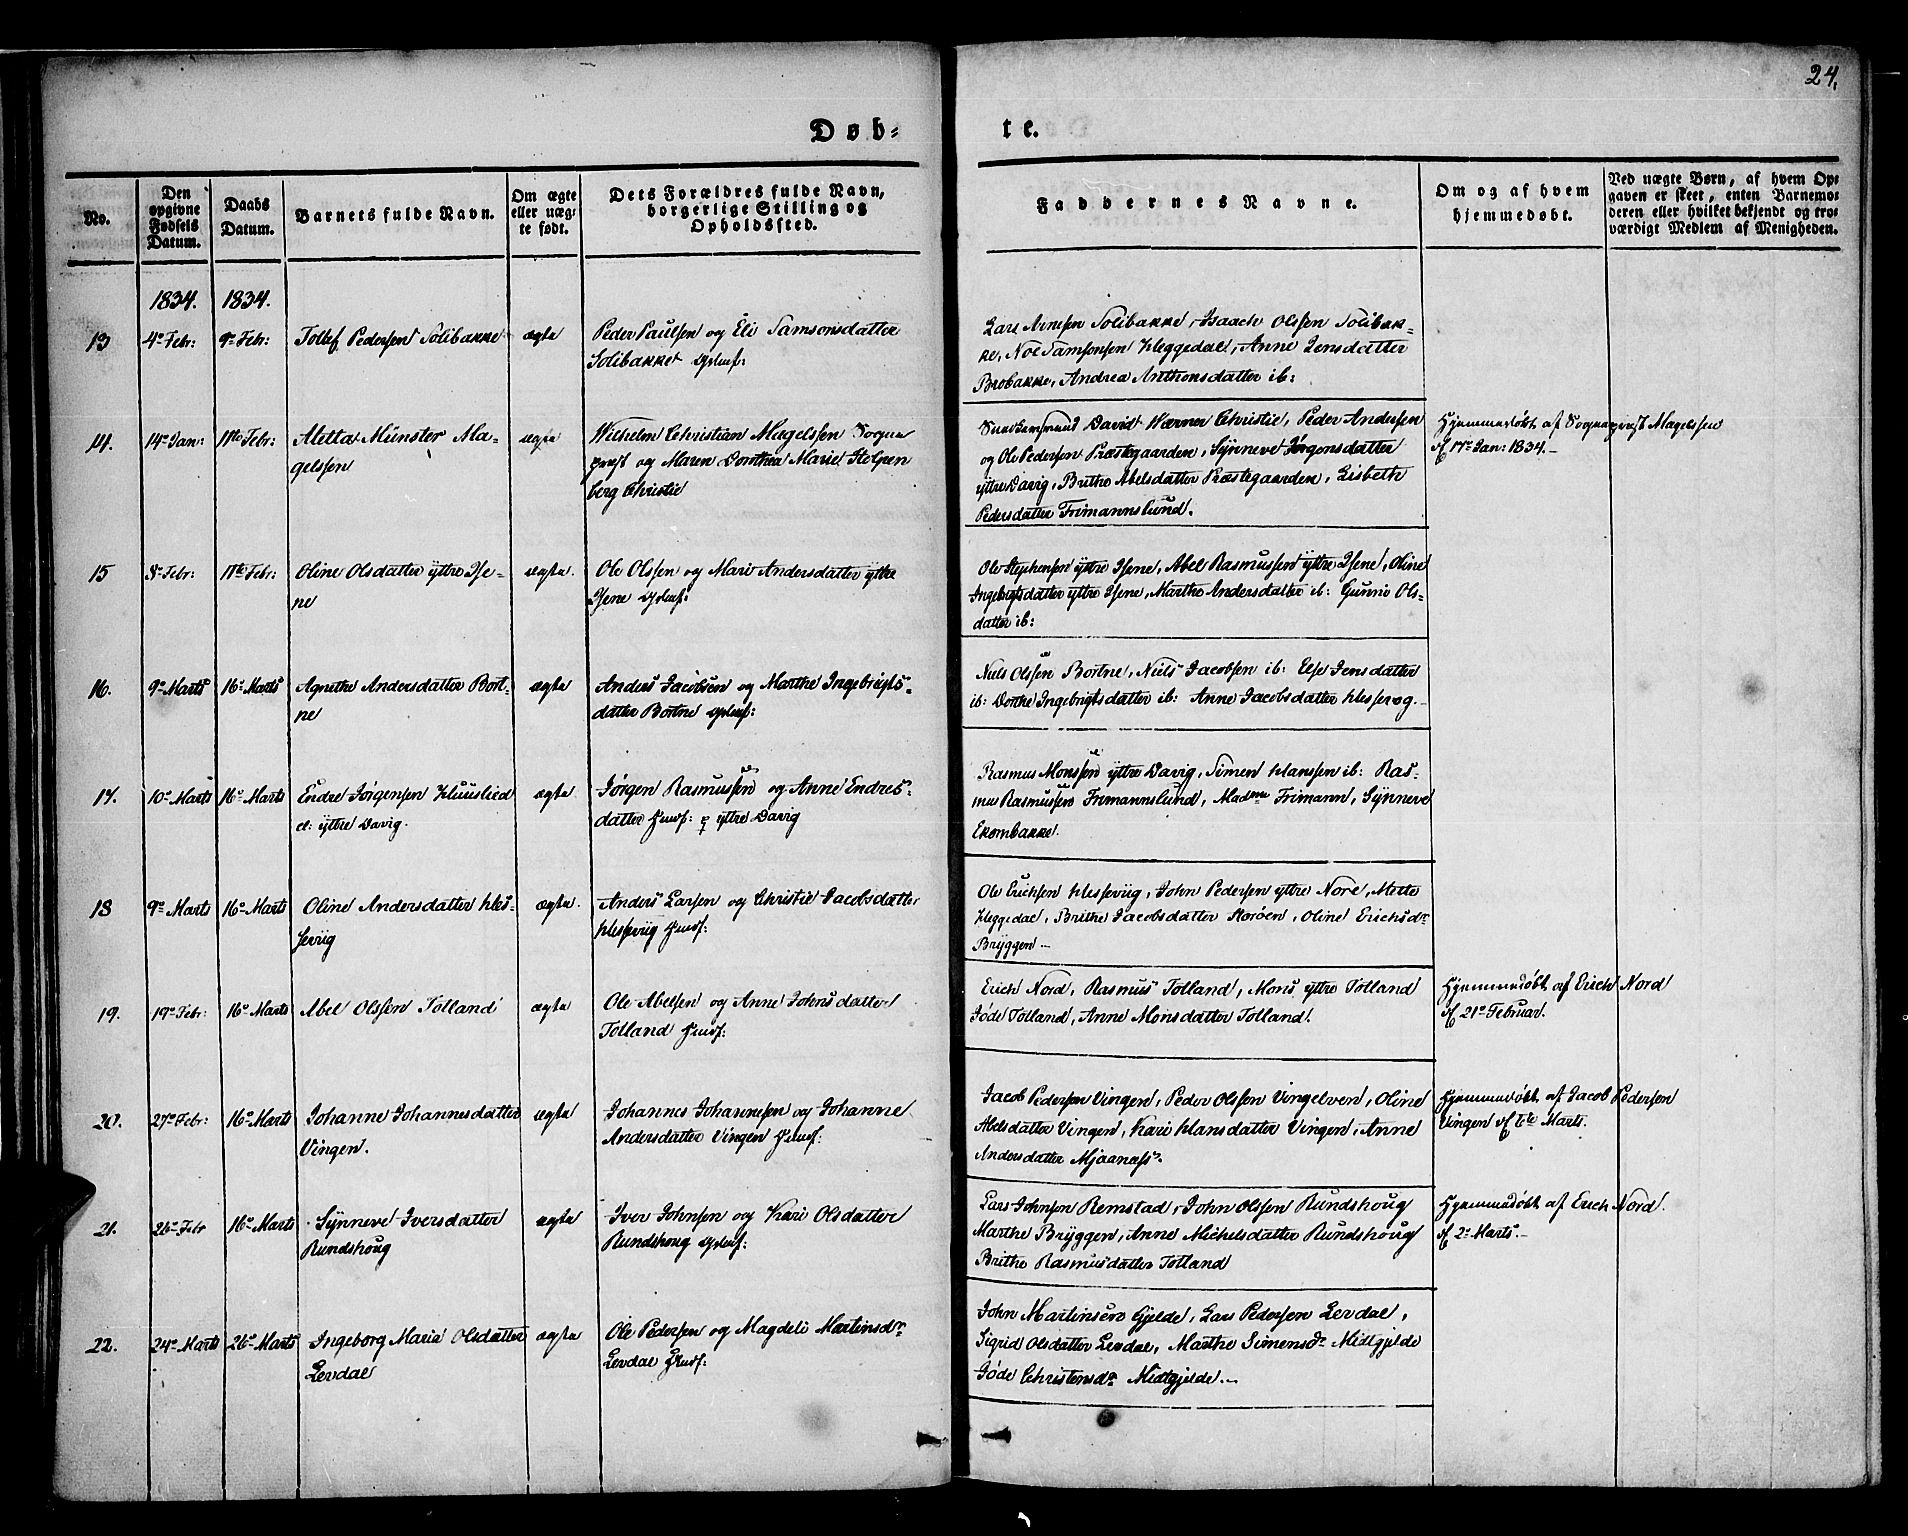 24.
Døb-
te.
No.
Den opgivne Fødsels Datum.
Daabs Datum.
Barnets fulde Navn.
Om ægte eller uægte født.
Dets Forældres fulde Navn, borgerlige Stilling og Opholdssted.
Faddernes Navne.
Om og af hvem hjemmedøbt.
Ved uægte Børn, af hvem Opgaven er skeet, enten Barnemoderen eller hvilket bekjendt og troværdigt Medlem af Menigheden.
1834. 1834.
13 4de Febr: 9de Febr: Tollef Pedersen Solibakke ægte
Peder Paulsen og Eli Samsonsdatter
Solibakke
Lars Arnesen Solibakke, Isaach Olssen Solibak-
ke, Noe Samsonsen Heggedal, Anne Jensdatter
Brobakke, Andrea Anthonsdatter ib:
14. 14de Jan: 11te Febr: Aletta Münster Ma-
gelssen
ægte
Wilhelm Christian Magelssen Sogne
præst og Maren Dorothea Marie Stolpen
berg Christie
David Werner Christie, Peder Andersen
og Ole Pedersen Præstegaarden, Synneve Jørgensdatter
yttre Davig, Brithe Abelsdatter Præstegaarden, Lisbeth
Pedersdatter Frimannslund.
Hjemmedøbt af Sognepræst Magelssen
d. 17de Jan: 1834.-
15 8de Febr: 11te Febr: Oline Olsdatter yttre Ise-
ne
ægte.
Ole Olssen og Mari Andersdatter yttre
Isene
Ole Stephensen yttre Isene, Abel Rasmussen yttre Isene, Oline
Ingebrigtsdatter yttre Isene, Marthe Andersdatter ib: Gunni Ols-
datter ib:
16. 9de Marts 16de Marts Agnethe Andersdatter Bort-
ne
ægte
Anders Jacobsen og Marthe Ingebrigts-
datter Bortne
Niels Olssen Bortne, Niels Jacobsen ib: Else Jensdatter
ib: Dorthe Ingebrigtsdatter ib: Anne Jacobsdatter
17. 10de Marts 16de Marts Endre Jørgensen Huuslied
yttre Davig.
ægte
Jørgen Rasmussen og Anne Endres-
datter Huusf: yttre Davig
Rasmus Monssen yttre Davig, Simen Hanssen ib: Ras-
mus Rasmussen Frimannslund, Madme Frimann, Synneve
Ekornbakke.
18 9de Marts 16de Marts Oline Andersdatter Hes-
seviig
ægte.
Anders Larsen og Christie Jacobsdatter
Hesseviig Huusf:
Ole Erichsen Hesseviig, John Pedersen yttre Nore, Mette
Heggedal, Brithe Jacobsdatter, Oline Erichsdr
Bryggen.-
19. 19de Febr: 16de Marts Abel Olssen Totland ægte
Ole Abelsen og Anne Johnsdatter
Totland Huusf:
Erich Nord, Rasmus Totland, Mons yttre Totland
Gøde Totland, Anne Monsdatter Totland.
Hjemmedøbt af Erich Nord
d. 21de Februar.
20. 27de Febr: 16de Marts Johanne Johannesdatter
Vingen.
ægte
Johannes Johannesen og Johanne
Andersdatter Vingen Huusf:
Jacob Pedersen Vingen, Peder Olsson Vingelven, Oline
Abelsdatter Vingen, Kari Hansdatter Vingen, Anne
Andersdatter Mjaanæss.
Hjemmedøbt af Jacob Pedersen
Vingen d. 6te Marts.
21. 26de Febr 16de Marts Synneve Iversdatter
Rundshoug
ægte
Iver Johnsen og Kari Olsdatter
Rundshoug
Lars Johnsen Remstad, John Olssen Rundshoug
Marthe Bryggen, Anne Michelsdatter Rundshoug
Brithe Rasmusdatter Totland
Hjemmedøbt af Erich Nord.
d. 2de Marts.-
22. 24de Marts 26de Marts Ingeborg Maria Olsdatter
Levdal
ægte
Ole Pedersen og Magdeli Martinsdr
Levdal Huusf:
John Martinsen Gjelde, Lars Pedersen Levdal,
Sigrid Olsdatter Levdal, Marthe Simensdr Midtgjelde
Gøde Christensdr Midtgjelde.-